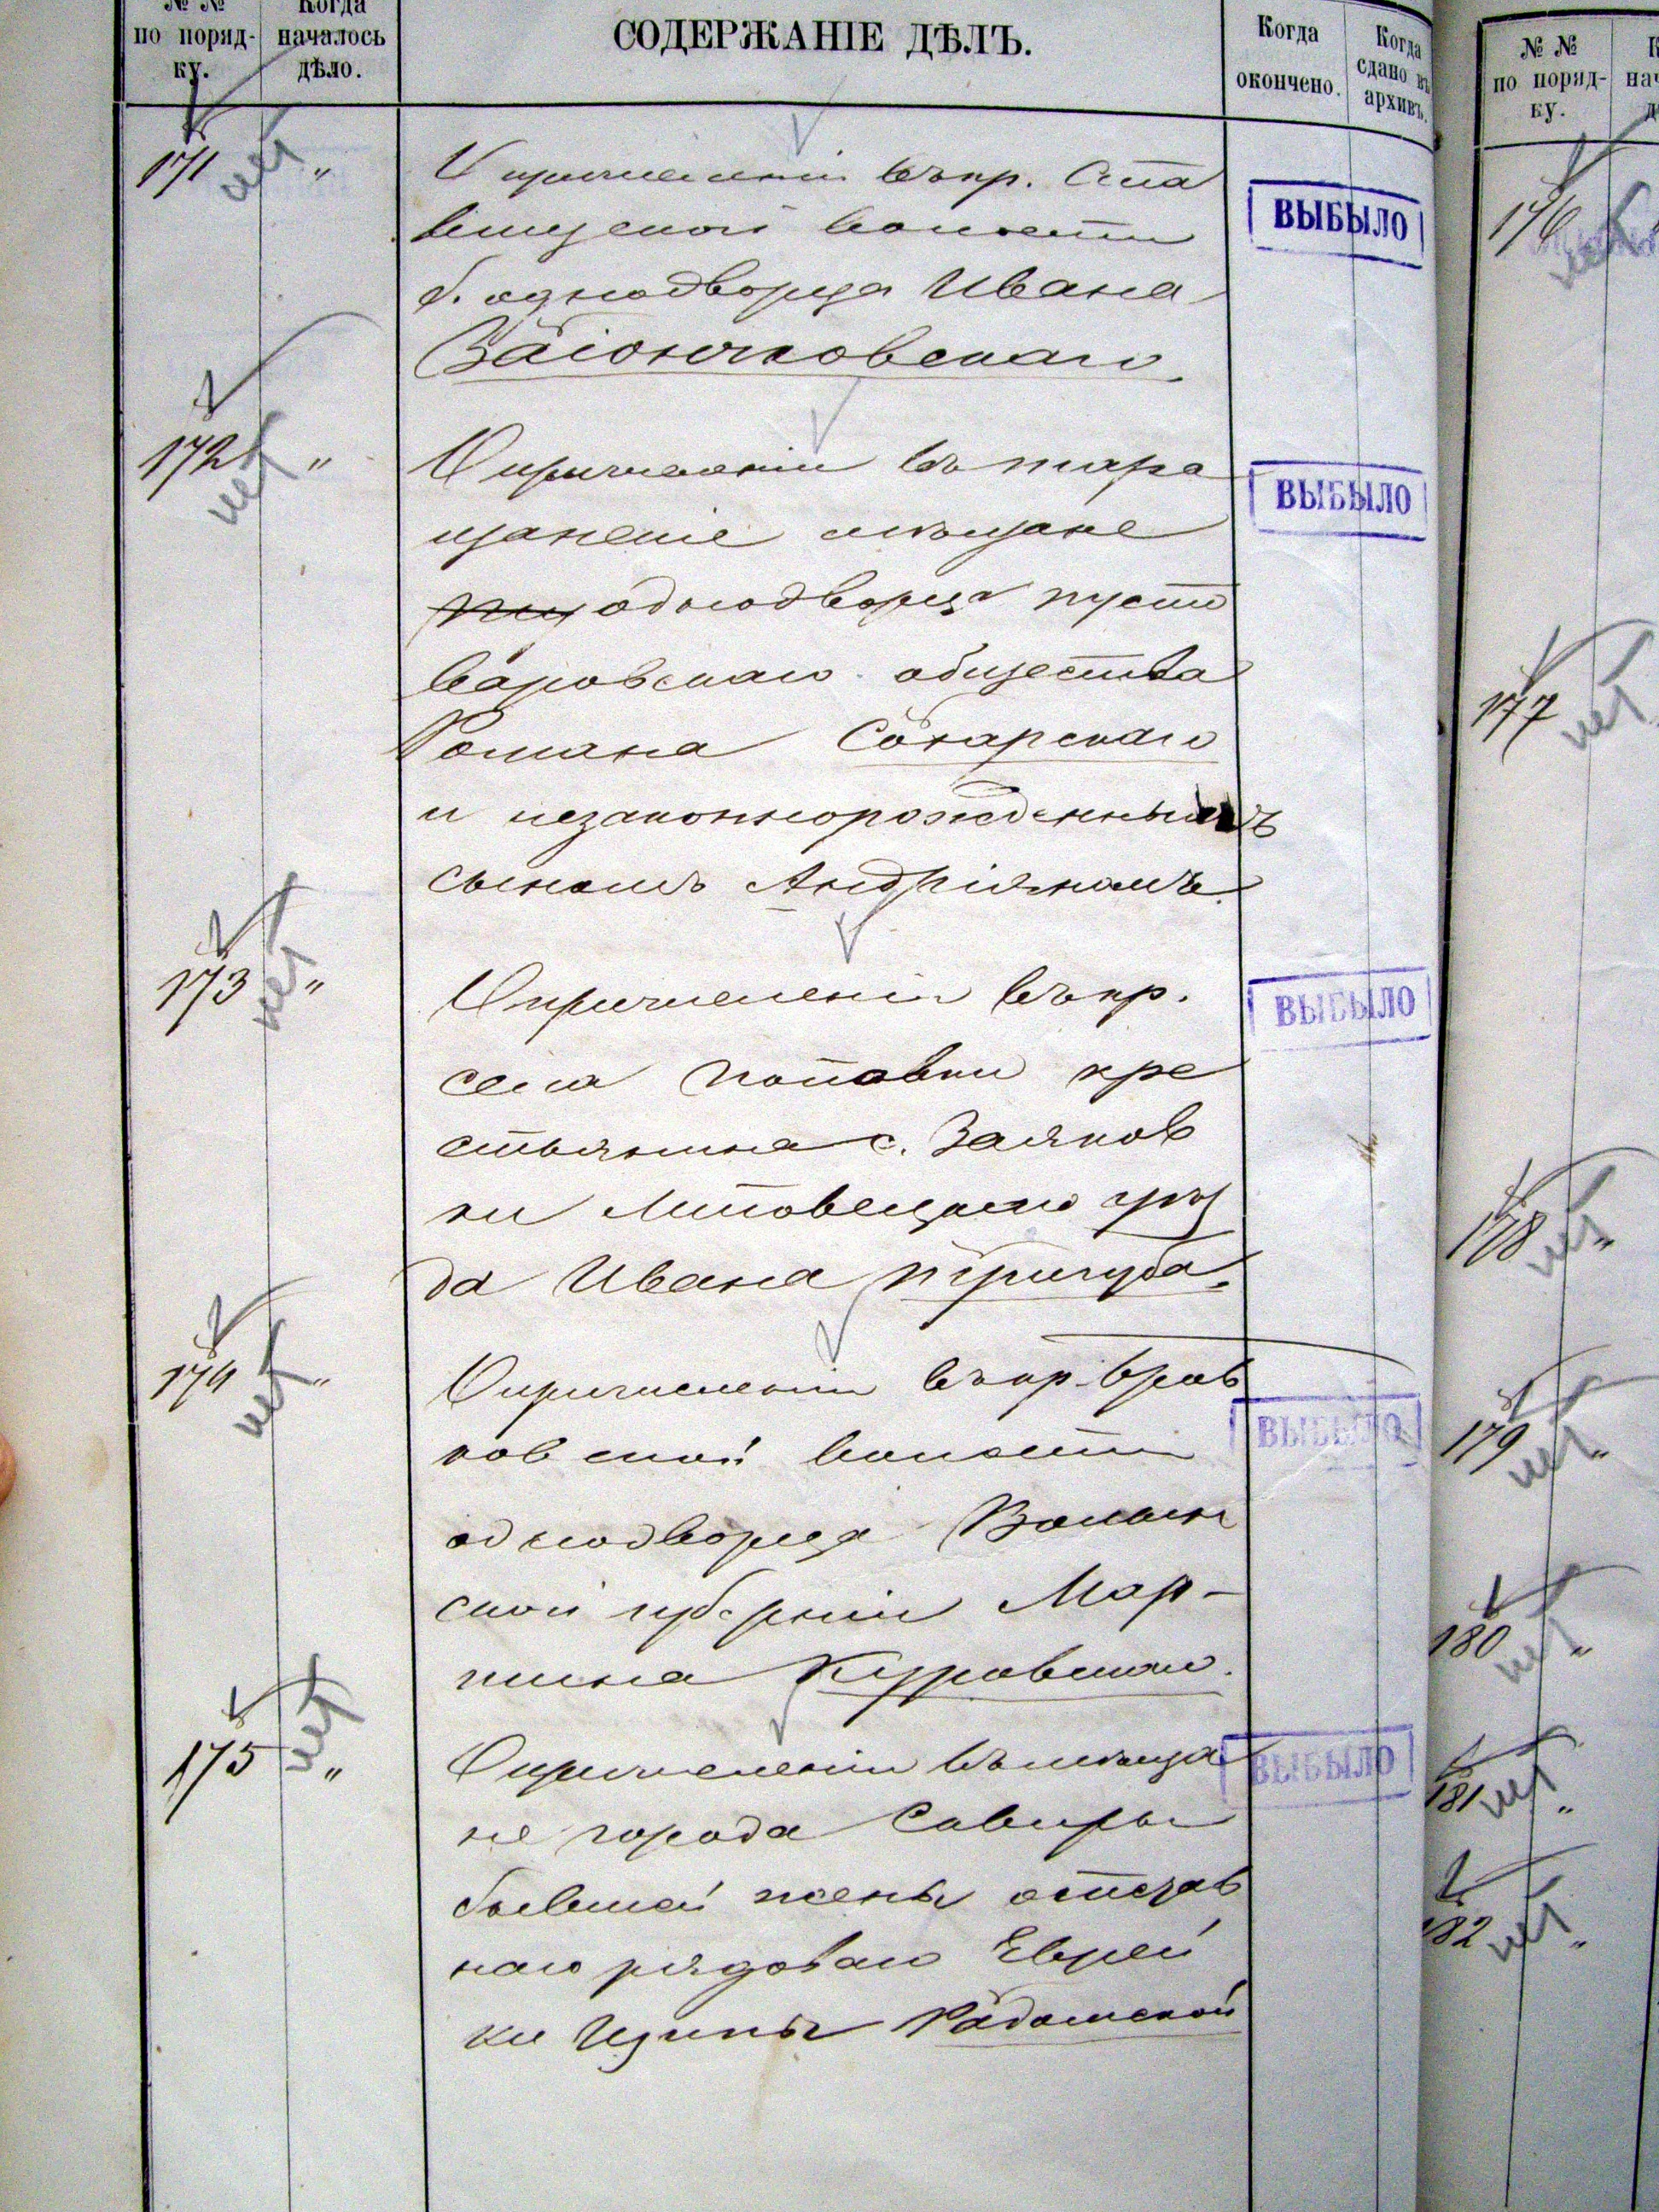 № №
по поряд-
ку.
Когда
началось
дѣло.
СОДЕРЖАНІЕ ДѢЛЪ.
Когда
окончено.
Когда
сдано въ
архивъ.
171 нет „
О причисленіи въ кр. Ста
вищской волости
б. однодворца Ивана
Заіончковскаго.
ВЫБЫЛО
172 нет „
О причисленіи въ тара
щанскіе мѣщане
однодворца пусто
варовскаго общества
Романа Сокарскаго
и незаконнорожденнымъ
сыномъ Андріяномъ.
ВЫБЫЛО
173 нет „
О причисленіи въ кр.
села Поповки кре
стьянина с. Заяков
ки Липовецкаго уѣз
да Ивана Тригуба.
ВЫБЫЛО
174 нет „
О причисленіи въ кр.
ковской волости
однодворца Волын
ской губерніи Мар-
тина Куровскаго.
ВЫБЫЛО
175 нет „
О причисленіи въ мѣща
не города Сквиры
бывшей жены отстав
наго рядоваго Еврей
ки Радомской
ВЫБЫЛО
№ №
по поряд-
ку.
176 нет
177 нет
178 нет „
179 нет „
180 нет „
181 нет „
182 нет „